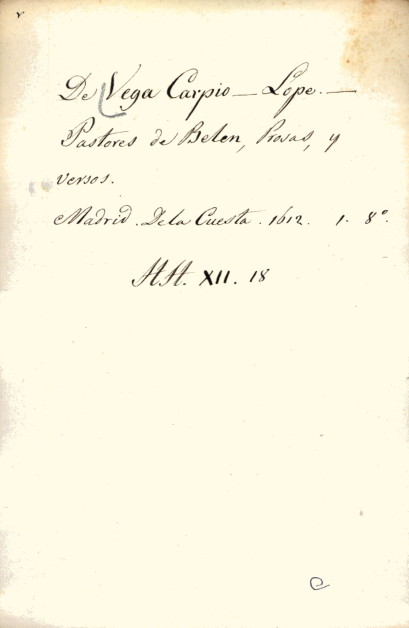 De Vega Carpio — Lope. —
Pastores de Belen, Prosas, y
versos.
Madrid. De la Cuesta. 1612. 1. 8º.
HH. XII. 18